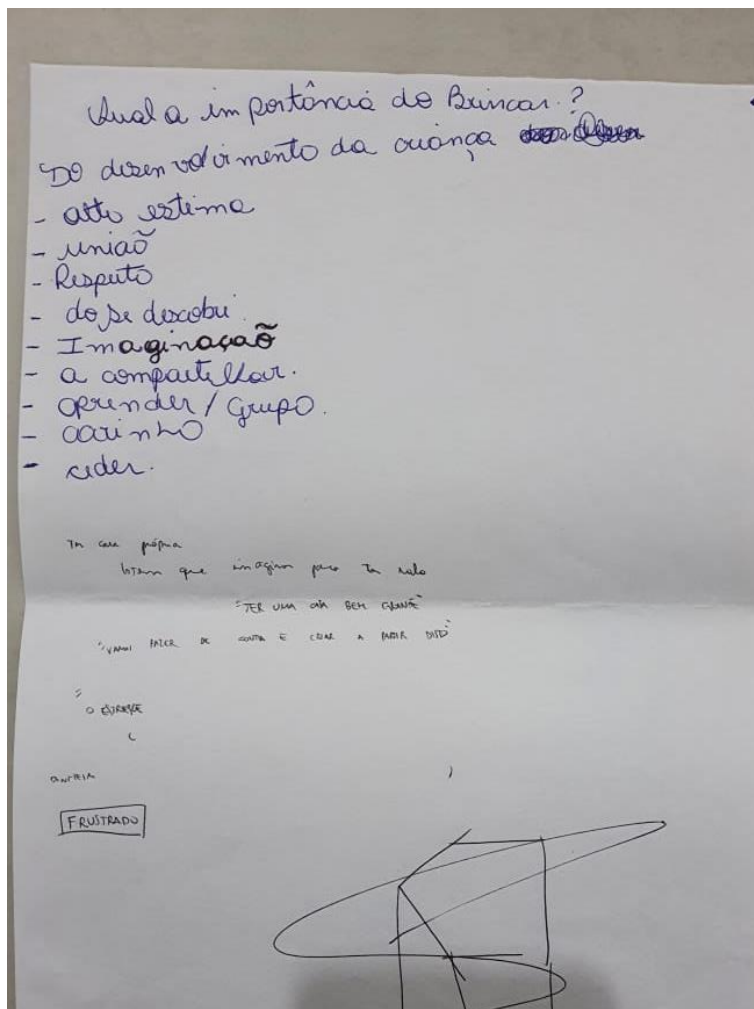 Qual a importância do Brincar.?
DO desenvolvimento da criança
- alto estima
- uniaõ
- Respeto
- do se descobri.
- Imaginaçaõ
- a compartilhar.
- aprender / Grupo.
- carinho
- ceder.
casa própria
que imagina para
"TER UMA BEM GRANDE"
"VAMOS FAZER DE CONTA E CRIAR A PARTIR DISSO"
O
FRUSTRADO